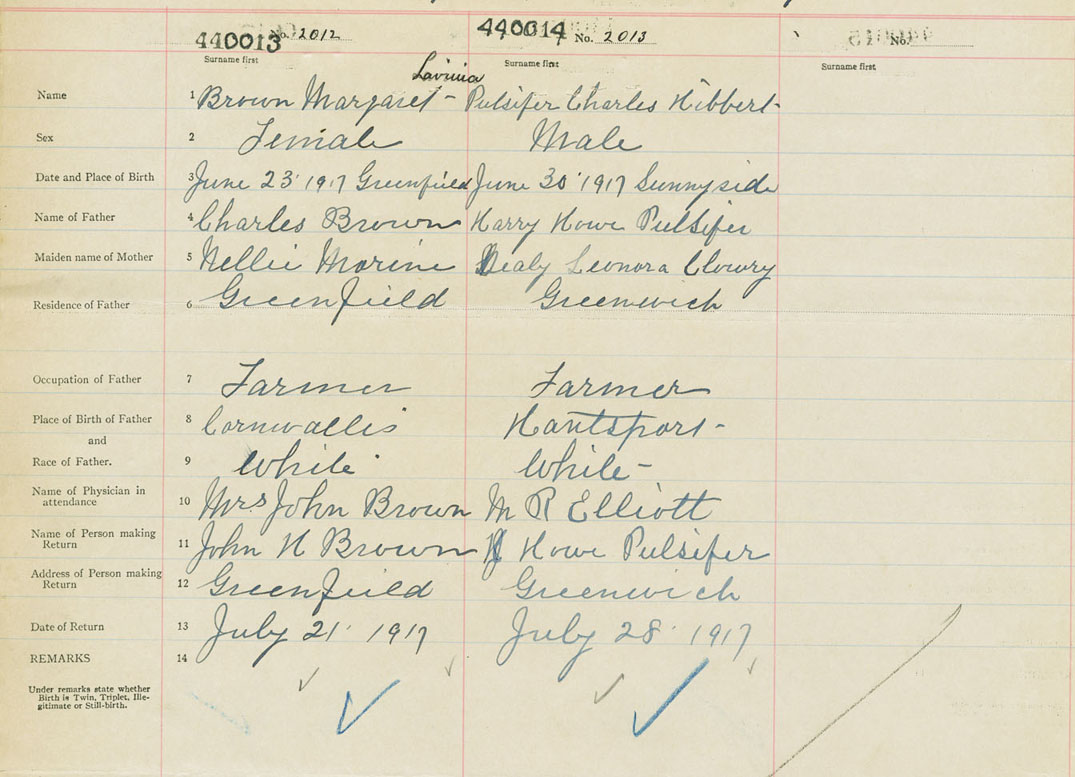 440013 No. 2012 440014 No. 2013 No.
Surname first Surname first Surname first
Lavinia
Name 1 Brown Margaret - Pulsifer Charles Hibbert -
Sex 2 Female Male
Date and Place of Birth 3 June 23 1917 Greenfield June 30 1917 Sunnyside
Name of Father 4 Charles Brown Harry Howe Pulsifer
Maiden name of Mother 5 Nellie Morine Leonora Clowry
Residence of Father 6 Greenfield Greenwich
Occupation of Father 7 Farmer Farmer
Place of Birth of Father 8 Cornwallis Hantsport -
and
Race of Father. 9 White White -
Name of Physician in
attendance 10 Mrs John Brown M R Elliott
Name of Person making
Return 11 John H Brown H Howe Pulsifer
Address of Person making
Return 12 Greenfield Greenwich
Date of Return 13 July 21 1917 July 28 1917
REMARKS 14
Under remarks state whether
Birth is Twin, Triplet, Ille-
gitimate or Still-birth.